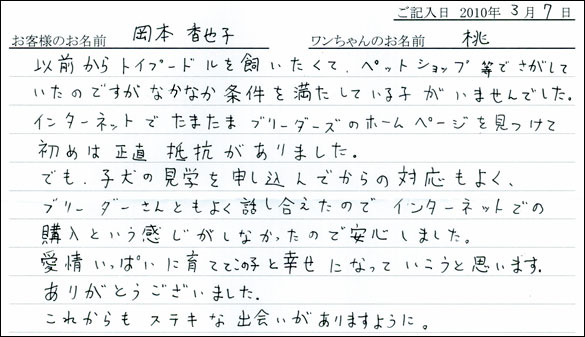 ご記入日 2010年 3月 7日
お客様のお名前 岡本 香也子 ワンちゃんのお名前 桃
以前からトイプードルを飼いたくて、ペットショップ等でさがして
いたのですがなかなか条件を満たしている子がいませんでした。
インターネットでたまたまブリーダーズのホームページを見つけて
初めは正直抵抗がありました。
でも、子犬の見学を申し込んでからの対応もよく、
ブリーダーさんともよく話し合えたのでインターネットでの
購入という感じがしなかったので安心しました。
愛情いっぱいに育ててこの子と幸せになっていこうと思います。
ありがとうございました。
これからもステキな出会いがありますように。